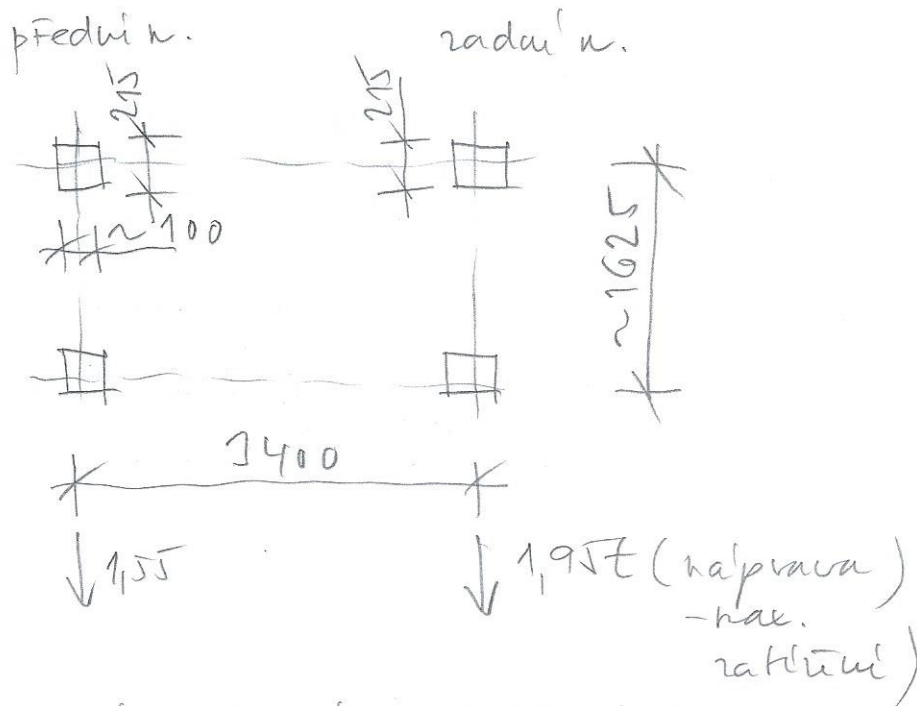 přední n. zadní n.
215 215
~100
~1625
3400
1,55 1,95t (náprava)
-max.
zatížení)